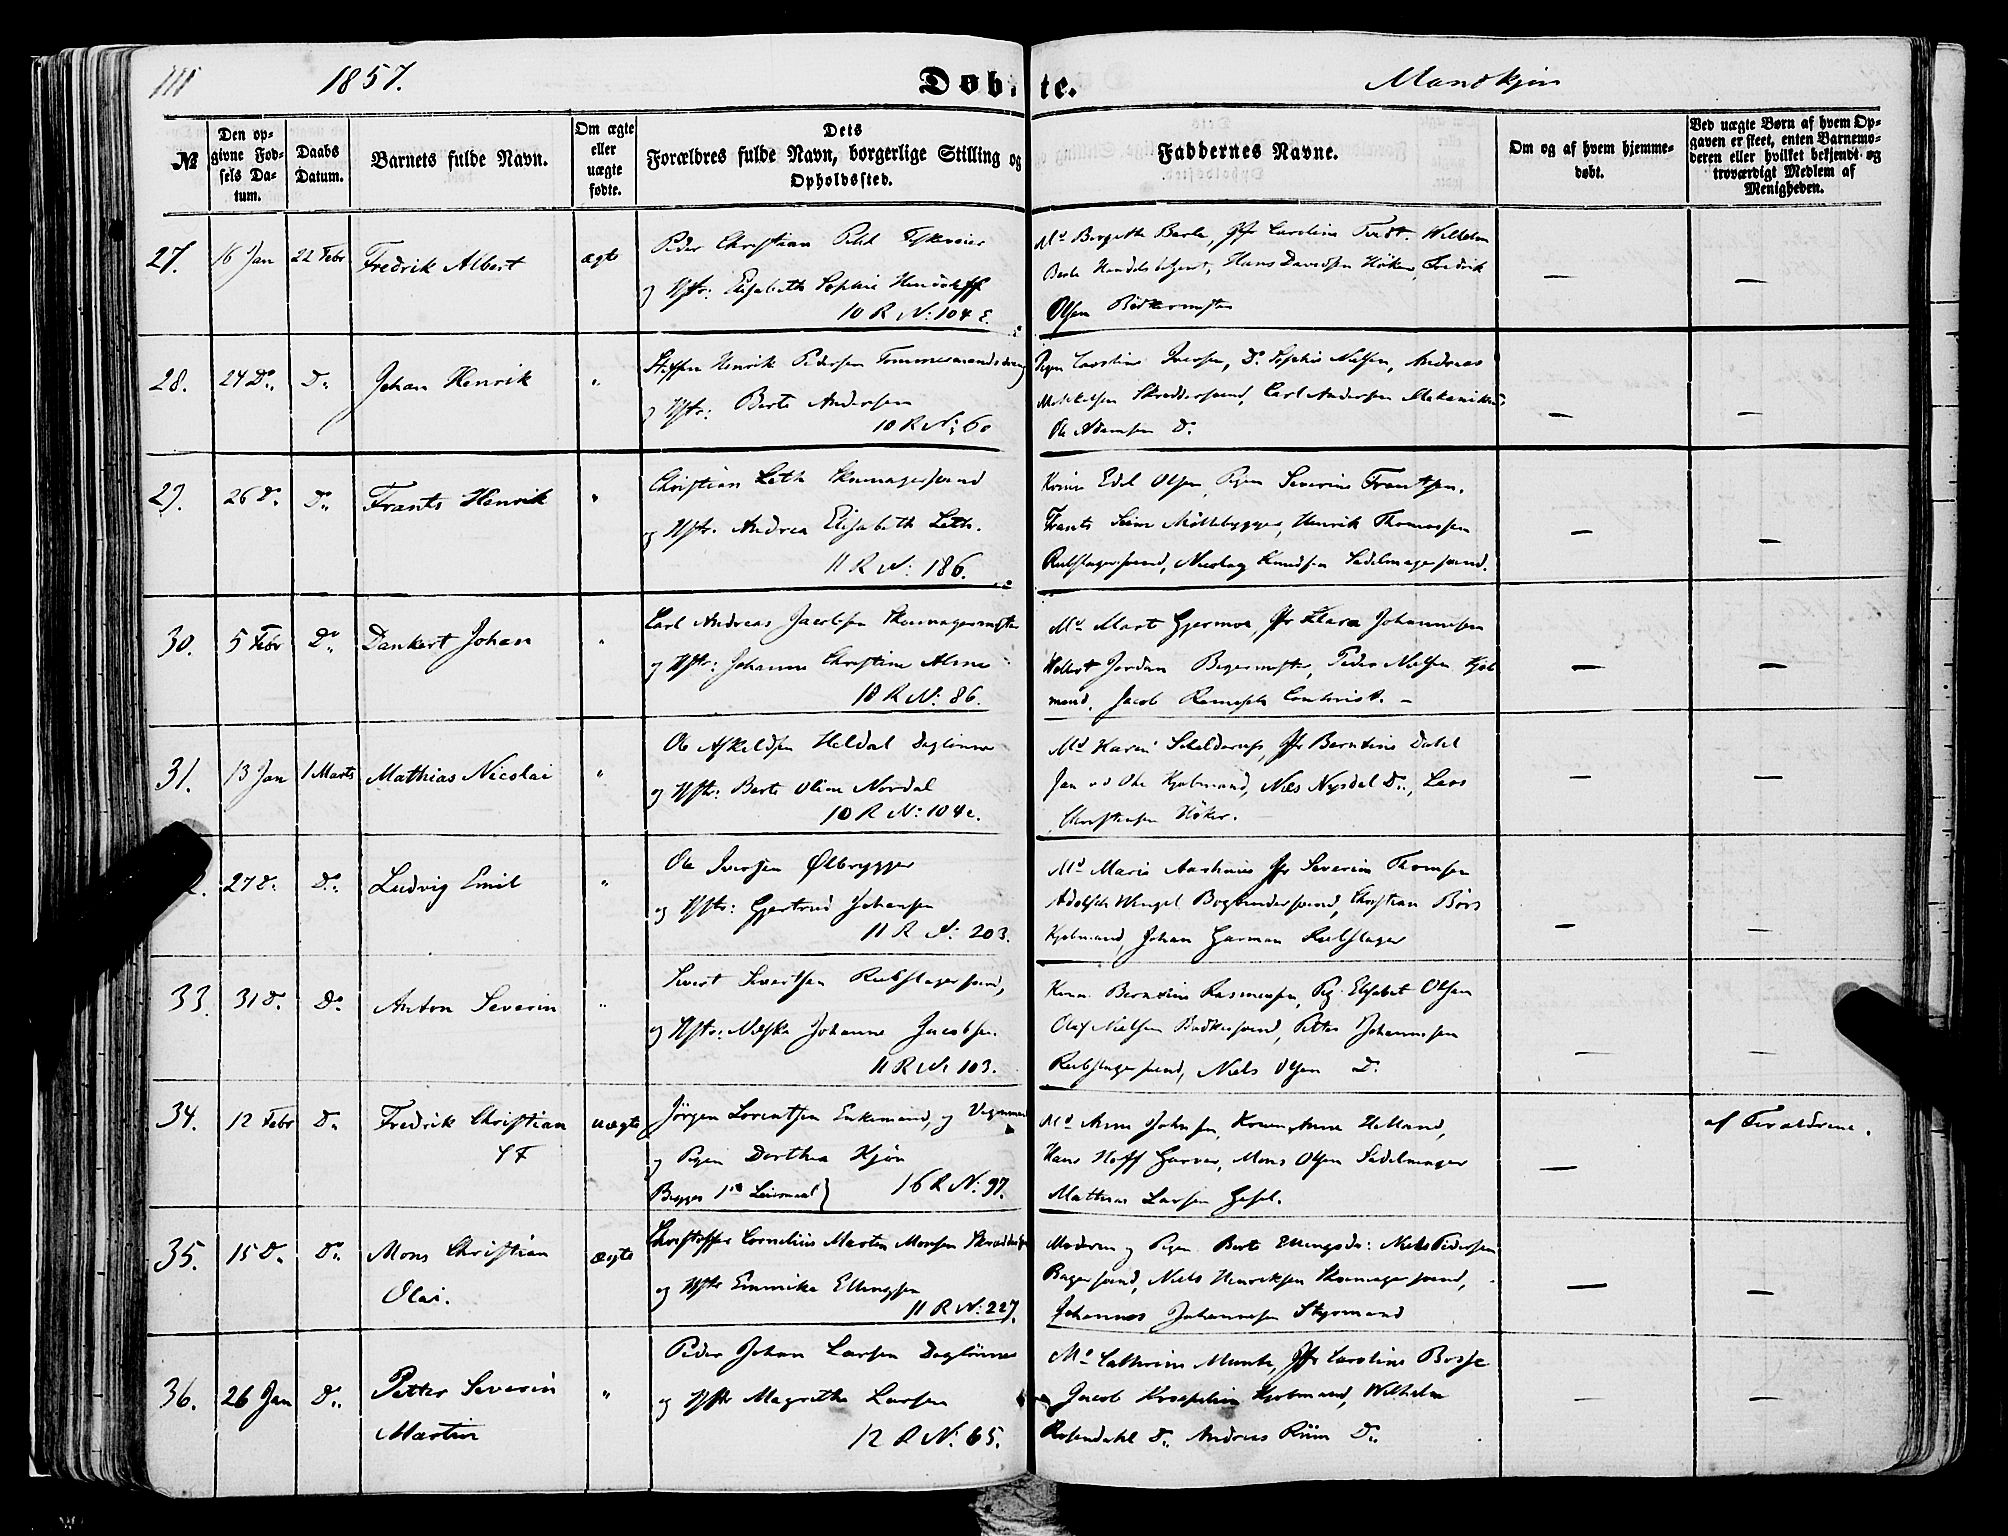 111 1857. Døbte. Mandkjøn
№
Den opgivne Fødsels Datum.
Daabs Datum.
Barnets fulde Navn.
Om ægte eller uægte fødte.
Dets Forældres fulde Navn, borgerlige Stilling og Opholdssted.
Faddernes Navne.
Om og af hvem hjemmedøbt.
Ved uægte Børn af hvem Opgaven er skeet, enten Barnemoderen eller hvilket bekjendt og troværdigt Medlem af Menigheden.
27. 16 Jan 22 Febr Fredrik Albert ægte Peder Christian
og Hstr: Elisabeth Sophie
10 R N: 104 c.
Md Birgitte Berle, Jfr Caroline Wilhelm
Berle Handelsbetjent, Hans Davidsen Høker, Fredrik
Olsen Bødkermster
— —
28. 24 Do. Do. Johan Henrik " Steffen Henrik Pedersen Tømmermandsdreng
og Hstr: Berte Andersen
10 R N: 60
Pigen Caroline Iversen, Do Sophie Nielsen, Andreas
Skræddersvend, Carl Andersen Mekanikus,
Ole Adamsen Do
— —
29. 26 Do. Do. Frants Henrik " Christian Leth Skomagersvend
og Hstr: Andrea Elisabeth Leth.
11 R N: 186.
Konen Edel Olsen, Pigen Severine Frantsen.
Frants Seim Møllebygger, Henrik Thomassen
Rebslagersvend, Nicolay Knudsen Sadelmagersvend.
— —
30. 5 Febr Do. Dankert Johan " Carl Andreas Jacobsen Skomagermster
og Hstr: Johanne Christine
10 R N: 86.
Md Marte Gjermoe, Jfr Klara Johannesen
Jordan Bagermster, Peder Nielsen Kjøb
mand, Jacob Contorist. —
— —
31. 13 Jan 1 Marts Mathias Nicolai " Ole Askeldsen Heldal Daglønner
og Hstr: Berte Oline Nordal
10 R N: 104 c.
Md Karen Schelderup, Jfr Berntine Dahl
Jan Kjøbmand, Nils Nysdal Do., Lars
Christensen Høker.
— —
2. 27 Do. Do. Ludvig Emil " Ole Iversen Ølbrygger
og Hstr: Gjertrud Johansen
11 R N: 203.
Md Marie Jfr Severine Thomsen
Adolph Wengel Bogbindersvend, Christian Børs
Kjøbmand, Johan Garman Rebslager
— —
33. 31 Do. Do. Anton Severin " Sivert Sivertsen Rebslagersvend,
og Hstr: Johanne Jacobsen
11 R N: 103.
Konen Berntine Rasmussen, Pig. Elisabet Olsen
Olaf Nielsen Bødkersvend, Petter Johannessen
Rebslagersvend, Niels Olsen Do.
— —
34. 12 Febr Do. Fredrik Christian uægte Jørgen Lorentsen Enkemand, og Vognmand
og Pigen Dorthea Kjøn
Begges 1ste Leiermaal} 16 R N: 97.
Md Anne Johnsen, Konen Anne Helland,
Hans Hoff Garver, Mons Olsen Sadelmager
Mathias Larsen Gesel.
—
af Forældrene.
35. 15 Do. Do. Mons Christian
Olai.
ægte Christopher Cornelius Martin Monsen
og Hstr Emmika Ellingsen
11 R N: 227.
Moderen og Pigen Berte Ellingsdr: Niels Pedersen
Bagersvend, Niels Henriksen Skomagersvend,
Johannes Johannessen Styrmand
— —
36. 26 Jan Do. Petter Severin
Martin
" Peder Johan Larsen Daglønner
og Hstr Magrethe Larsen
12 R N: 65.
Md Cathrine Munch, Jfr Caroline Bosse
Jacob Kroepelin Kjøbmand, Wilhelm
Rosendahl Do. Andreas Riim Do.
— —